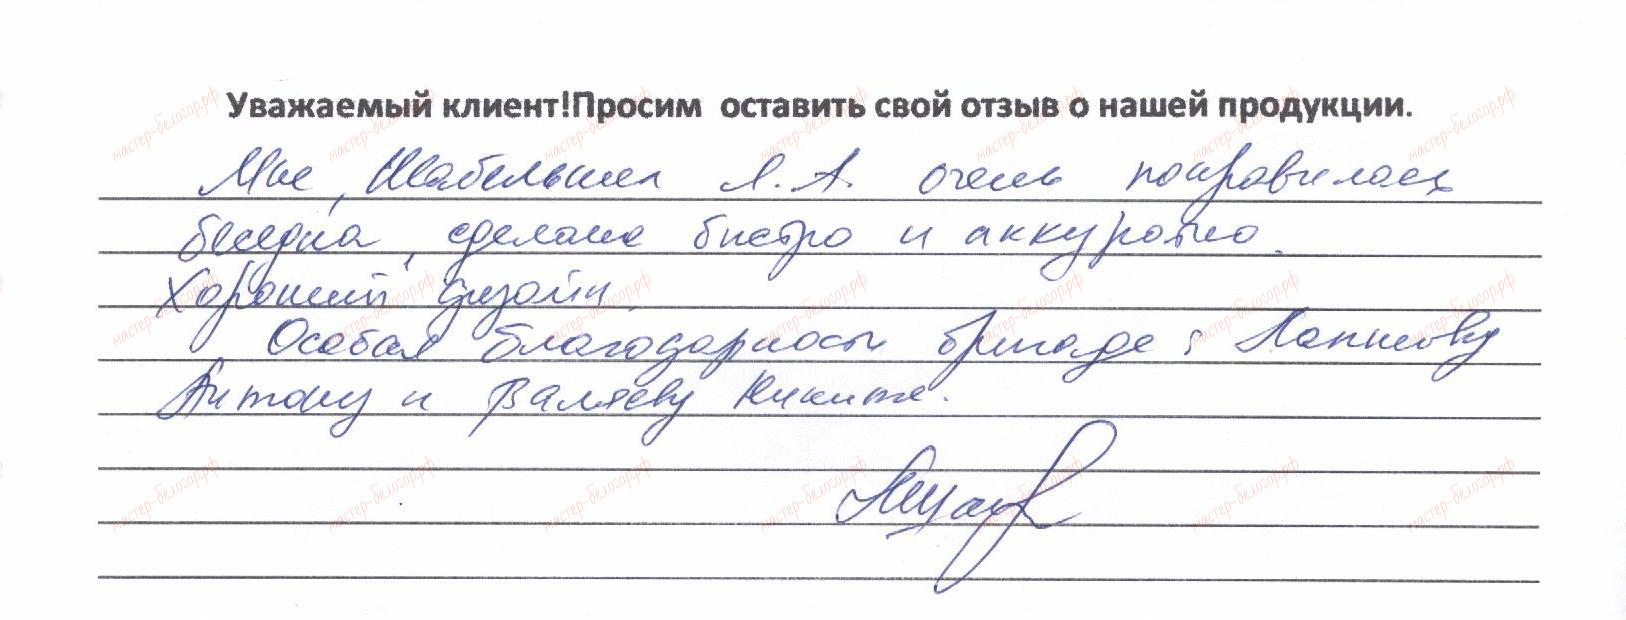 Уважаемый клиент!Просим оставить свой отзыв о нашей продукции.
Мне, Шабельник Л.А. очень понравилась
беседка, сделана быстро и аккуратно.
Хороший дизайн
Особая благодарность бригаде:
Антону и Валяеву Никите.
мастер-белогор.рф